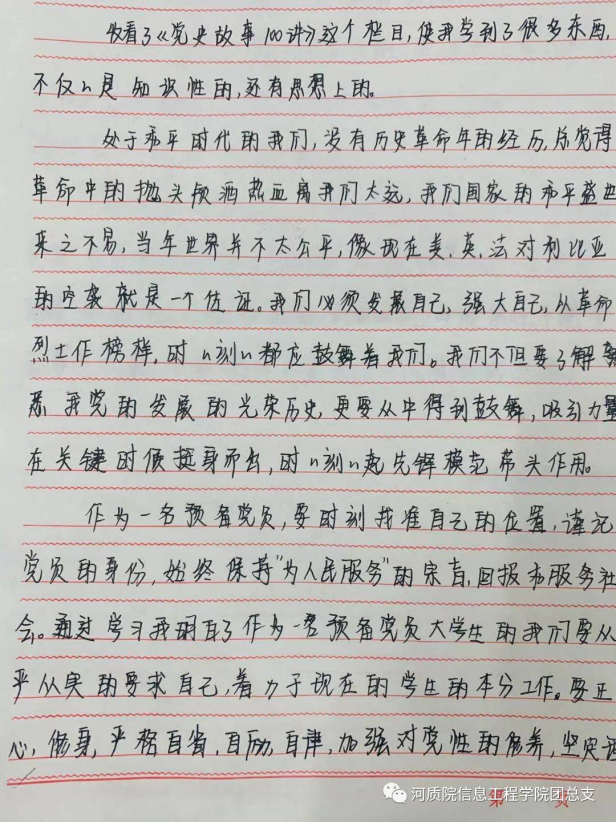 收看了《党史故事100讲》这个栏目,使我学到了很多东西,
不仅仅是知识性的,还有思想上的。
处于和平时代的我们,没有历史革命年的经历,总觉得
革命中的抛头颅洒热血离我们太远,我们国家的和平盛世
来之不易,当年世界并不太公平,像现在美、英、法对利比亚
的空袭就是一个佐证。我们必须发展自己,强大自己,从革命
烈士作榜样,时时刻刻都应鼓舞着我们。我们不但要了解熟
悉我党的发展的光荣历史,更要从中得到鼓舞,吸引力量
在关键时候挺身而出,时时刻刻起先锋模范带头作用。
作为一名预备党员,要时刻找准自己的位置,谨记
党员的身份,始终保持"为人民服务"的宗旨,回报和服务社
会。通过学习我明白了作为一名预备党员大学生的我们要从
严从实的要求自己,着力于现在的学生的本分工作。要正
心,修身,严格自省,自励,自律,加强对党性的修养,坚定
第 页
河质院信息工程学院团总支